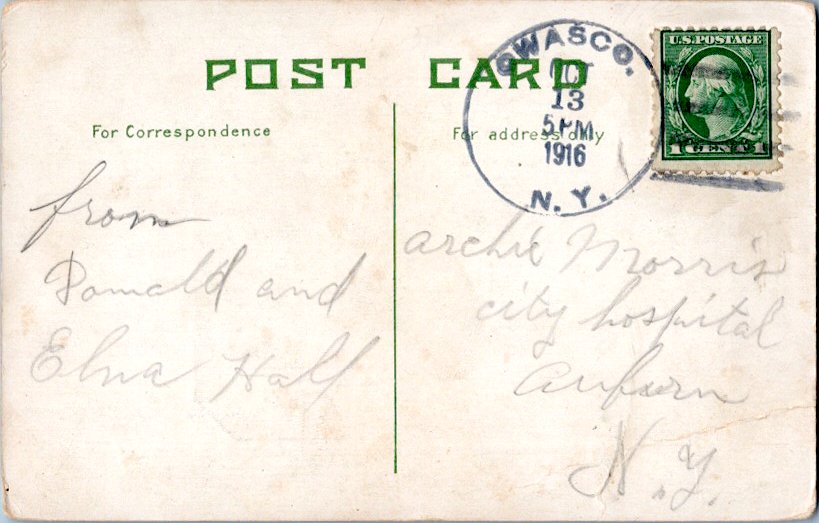 POST CARD
For Correspondence
For address only
OWASCO.
OCT
13
5 PM
1916
N. Y.
U.S. POSTAGE
1 CENT 1
from
Donald and
Elna Hall
archie Morris
city hospital
auburn
N.Y.